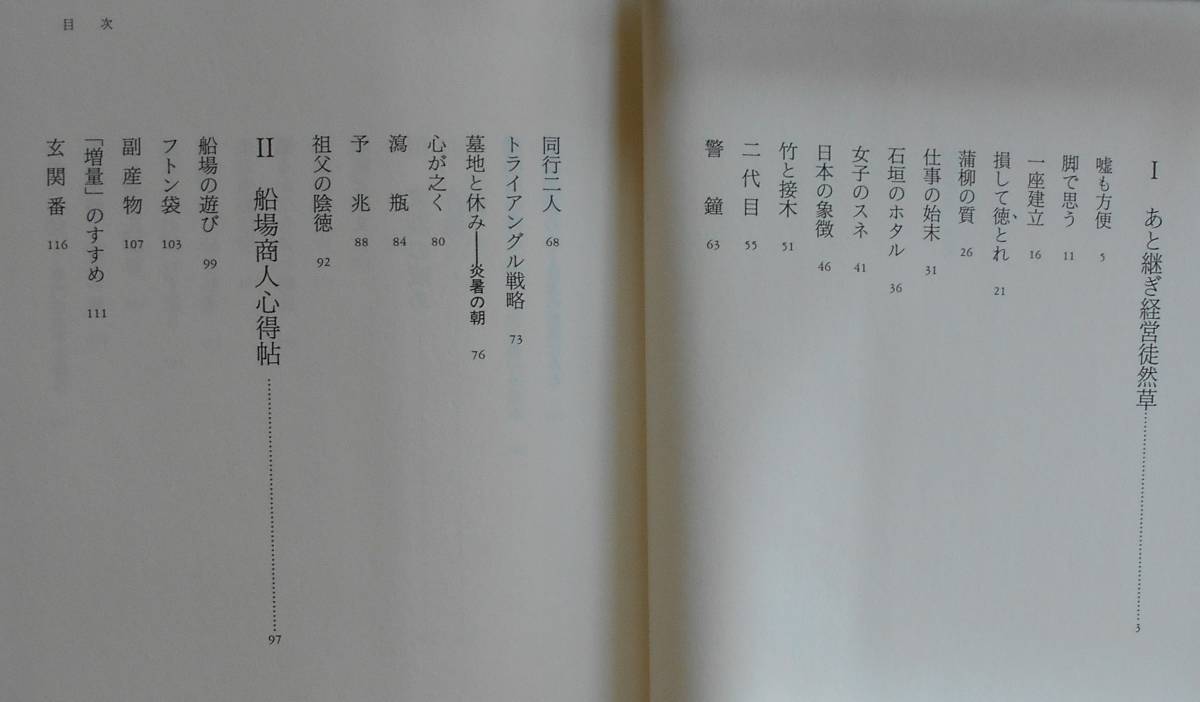 I あと継ぎ経営徒然草……………………3
嘘も方便 5
脚で思う 11
一座建立 16
損して徳、とれ 21
蒲柳の質 26
仕事の始末 31
石垣のホタル 36
女子のスネ 41
日本の象徴 46
竹と接木 51
二代目 55
警鐘 63
目次
同行二人 68
トライアングル戦略 73
墓地と休み――炎暑の朝 76
心が之く 80
瀉瓶 84
予兆 88
祖父の陰徳 92
II 船場商人心得帖……………………97
船場の遊び 99
フトン袋 103
副産物 107
「増量」のすすめ 111
玄関番 116